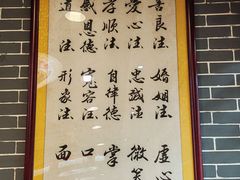 善良法 婚姻法 虚心
爱心法 忠诚法 微笑
孝顺法 自律德 掌
感恩德 宽容法 口
道法 形象法 面